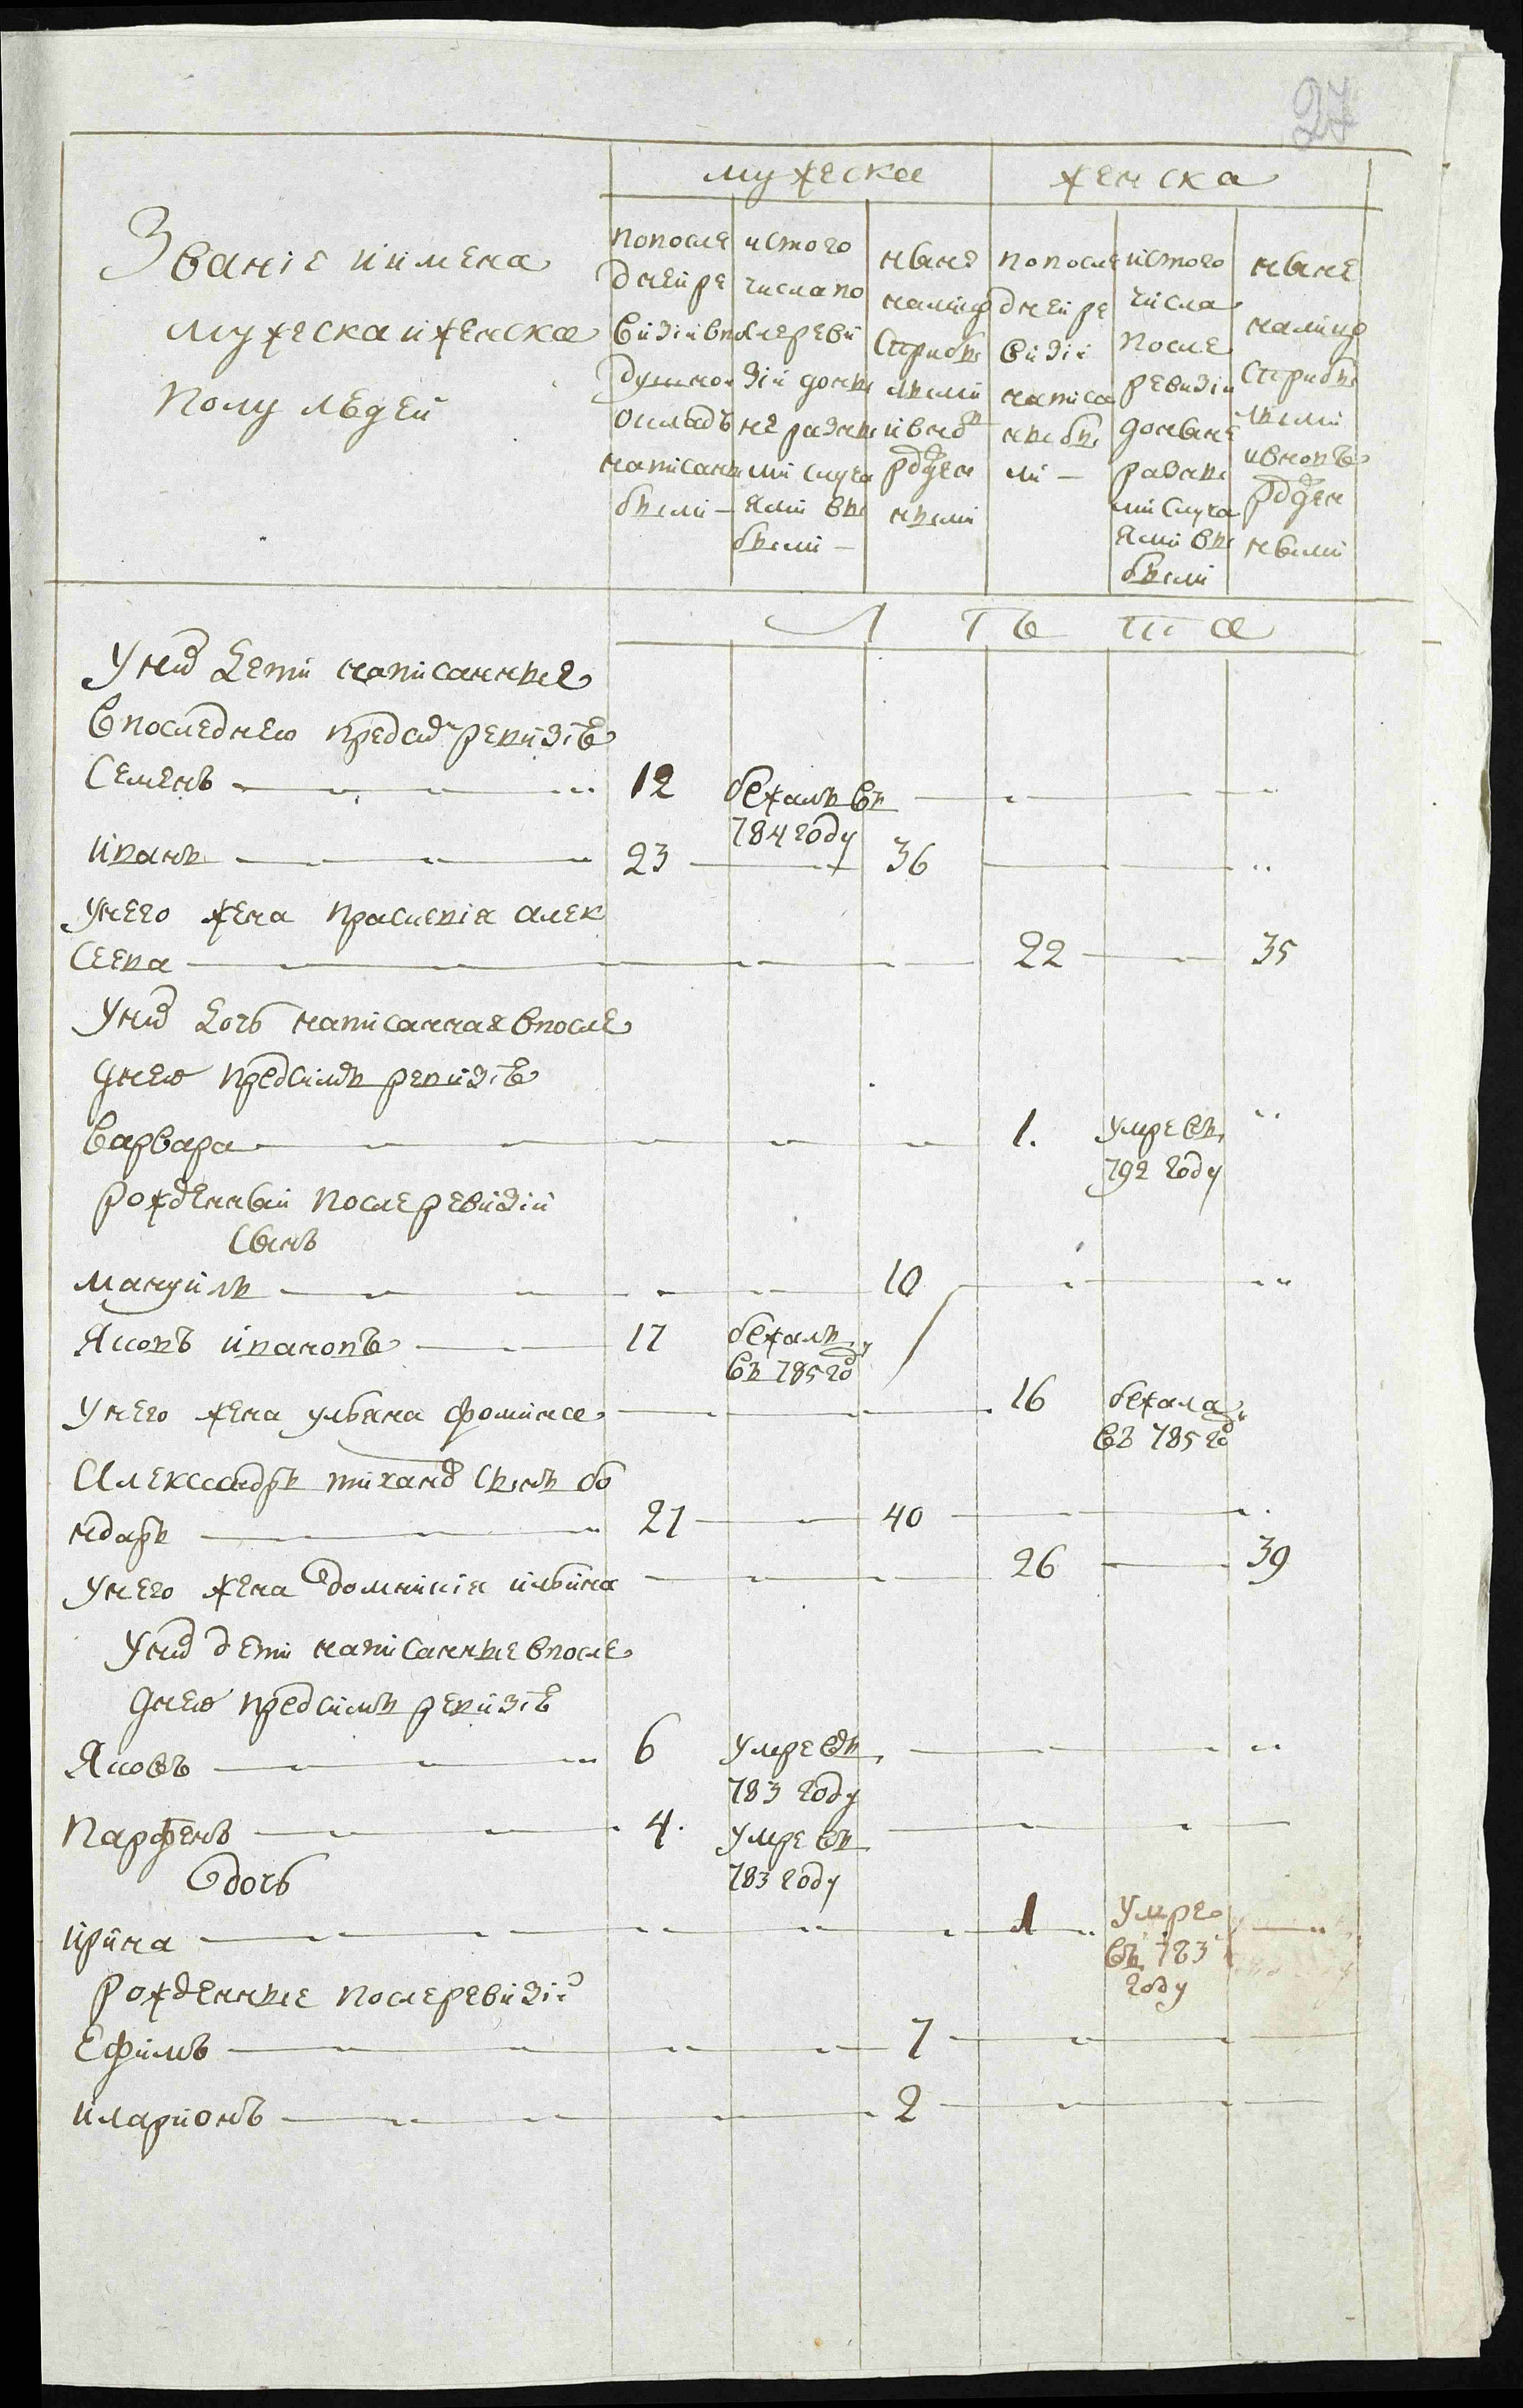 27
мужеска женска
Званіе и имена
мужеска и женска
полу людей
попосле
дней ре
визіи в
душно
окладъ
написаны
были —
истого
числа по
слереви
зіи доны
не разны
ми случа
ями вы
были —
ныне
налицо
сприбы
лыми
и вновь
рожден
ными
попосле
дней ре
визіи
написа
ны бы
ли —
истого
числа
после
ревизіи
доныне
разны
ми случа
ями вы
были
ныне
налицо
сприбы
лыми
ивновъ
рожден
ными
Лѣта
У них дети написанные
впоследнею пред сим ревизіѣ
Семенъ 12 бежалъ въ
784 году
иванъ 23 36
унего жена прасковія алек
сеева 22 35
У них дочь написанная впосле
днею пред симъ ревизіѣ
варвара 1. умре въ
792 году
рожденный после ревизіи
сынъ
мануилъ 10
Яковъ ивановъ 17 бежалъ
въ 785 году
унего жена ульяна фомина 16 бежала
въ 785 году
Александръ тиханов сынъ бо
ндарь 21 40
унего жена домникія ильина 26 39
У них дети написанные впосле
днею пред симъ ревизіѣ
Яковъ 6 умре въ
783 году
Парфенъ 4. умре въ
783 году
дочь
ирина 1 умре
въ 783
году
рожденные после ревизіи
Ефимъ 7
иларионъ 2